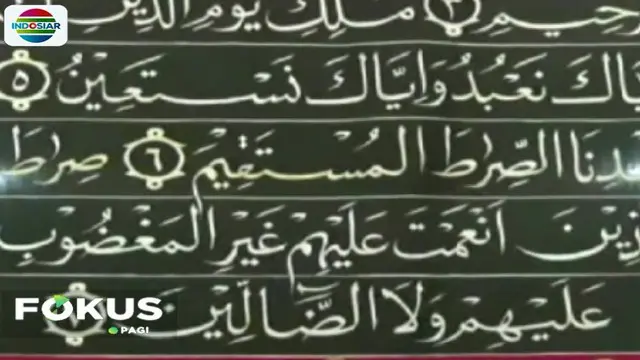 INDOSIAR
حِيْمِ ٣ مٰلِكِ يَوْمِ الدِّيْنِ
اكَ نَعْبُدُ وَاِيَّاكَ نَسْتَعِيْنُ ٥
دِنَا الصِّرَاطَ الْمُسْتَقِيْمَ ٦ صِرَاطَ
ذِيْنَ اَنْعَمْتَ عَلَيْهِمْ غَيْرِ الْمَغْضُوْبِ
عَلَيْهِمْ وَلَا الضَّالِّيْنَ ٧
FOKUS
PAGI